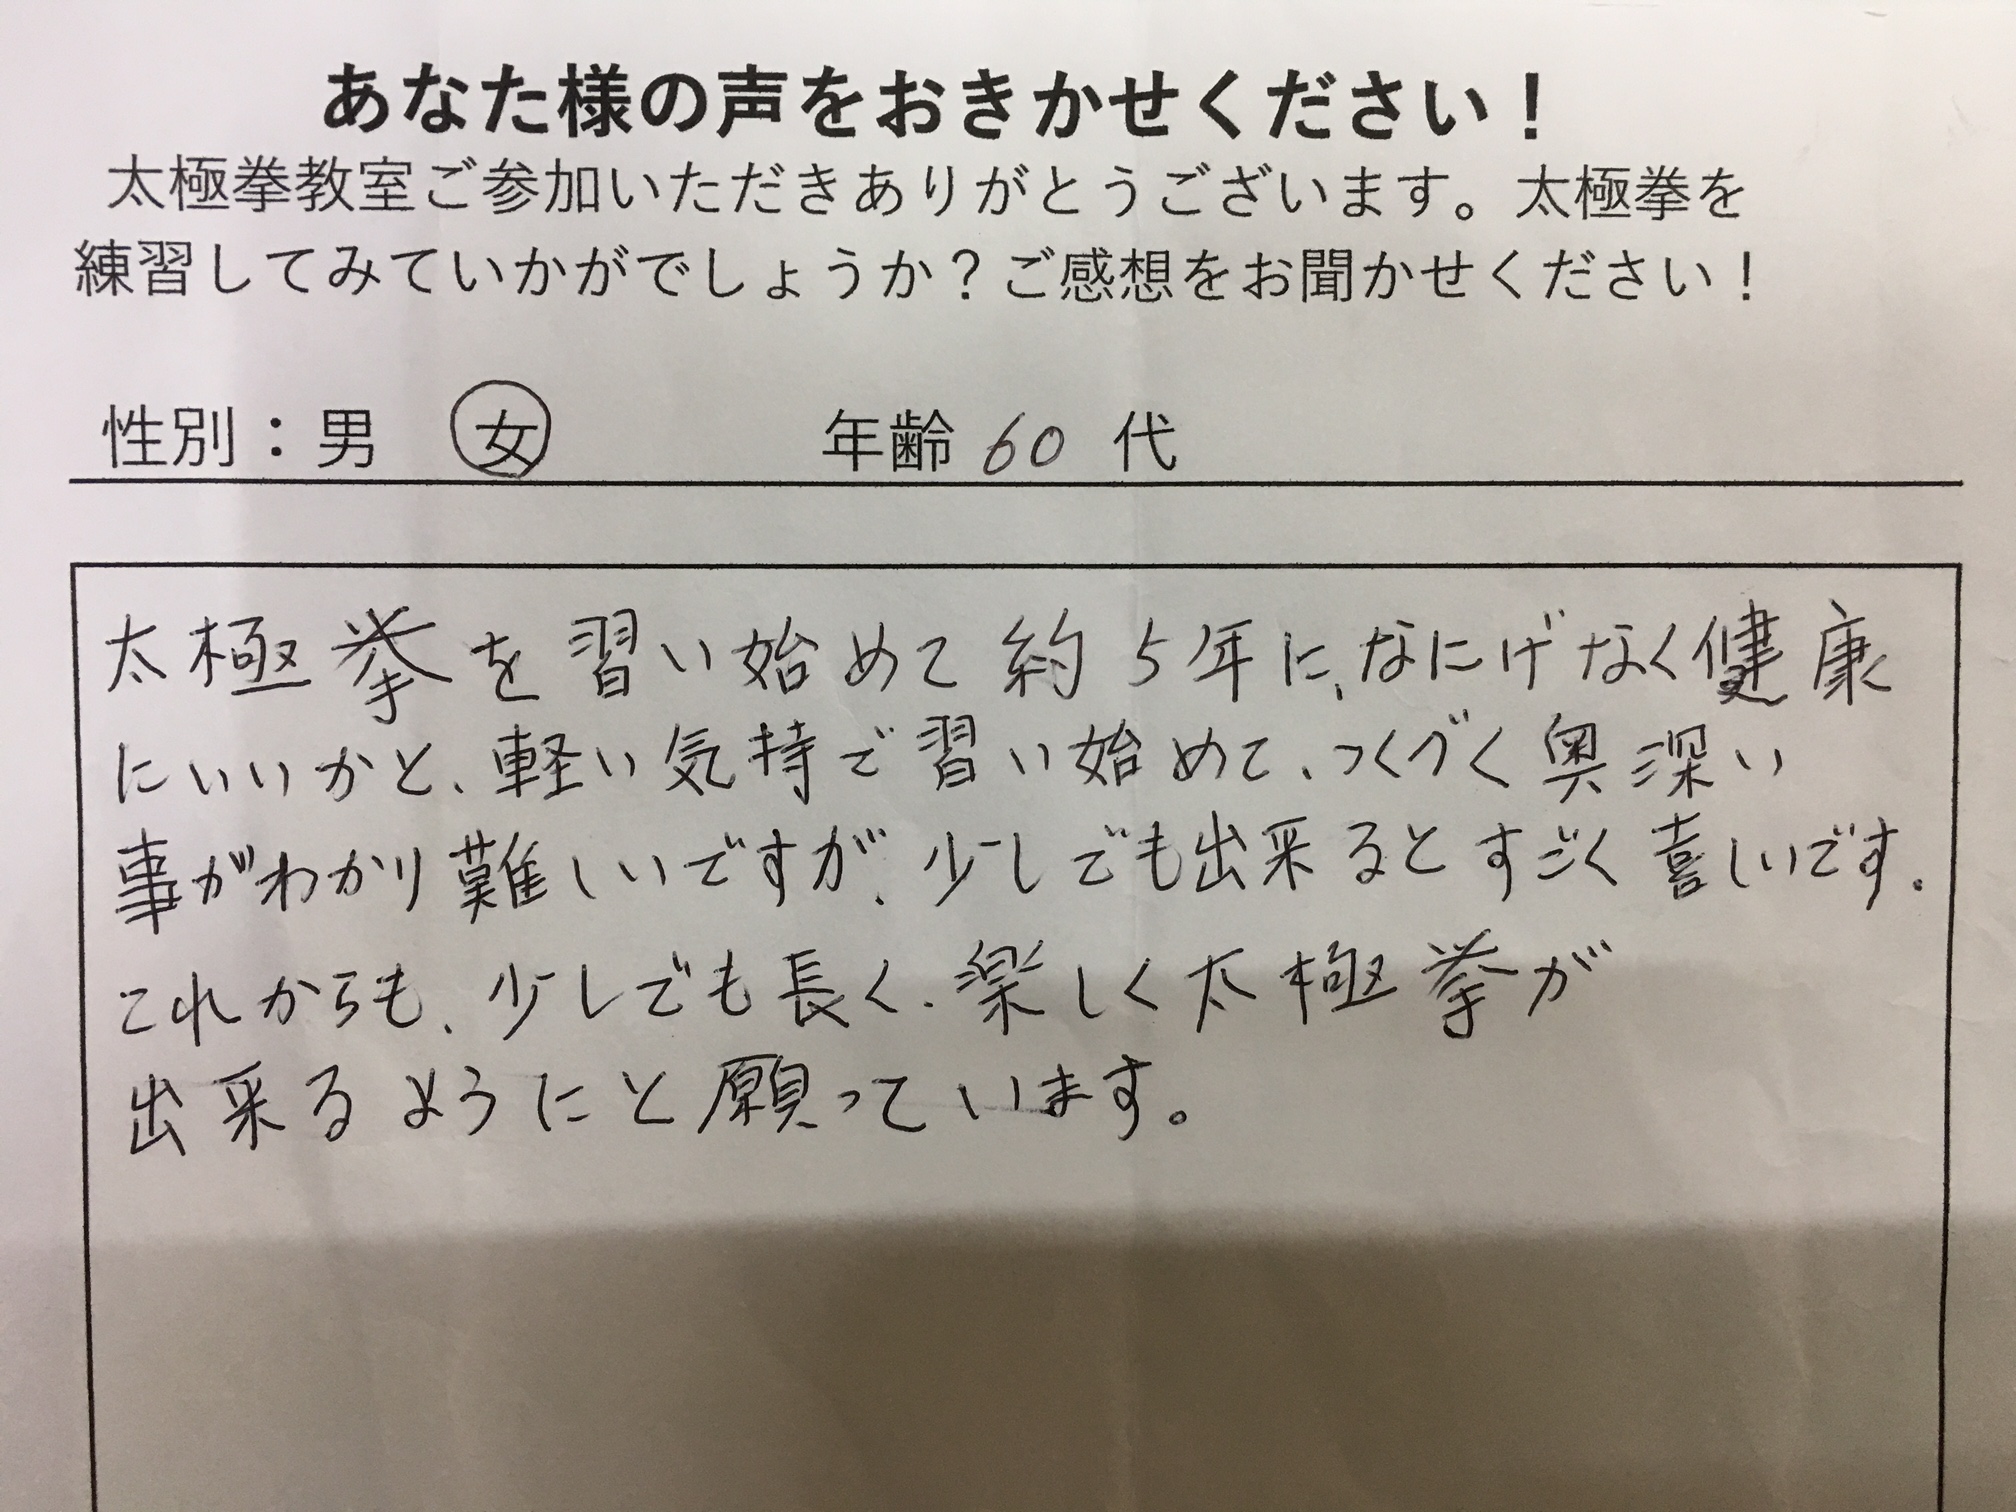 あなた様の声をおきかせください！
太極拳教室ご参加いただきありがとうございます。太極拳を
練習してみていかがでしょうか？ご感想をお聞かせください！
性別：男　女　年齢 60 代
太極拳を習い始めて約5年に、なにげなく健康
にいいかと、軽い気持で習い始めて、つくづく奥深い
事がわかり難しいですが、少しでも出来るとすごく喜しいです。
これからも、少しでも長く、楽しく太極拳が
出来るようにと願っています。